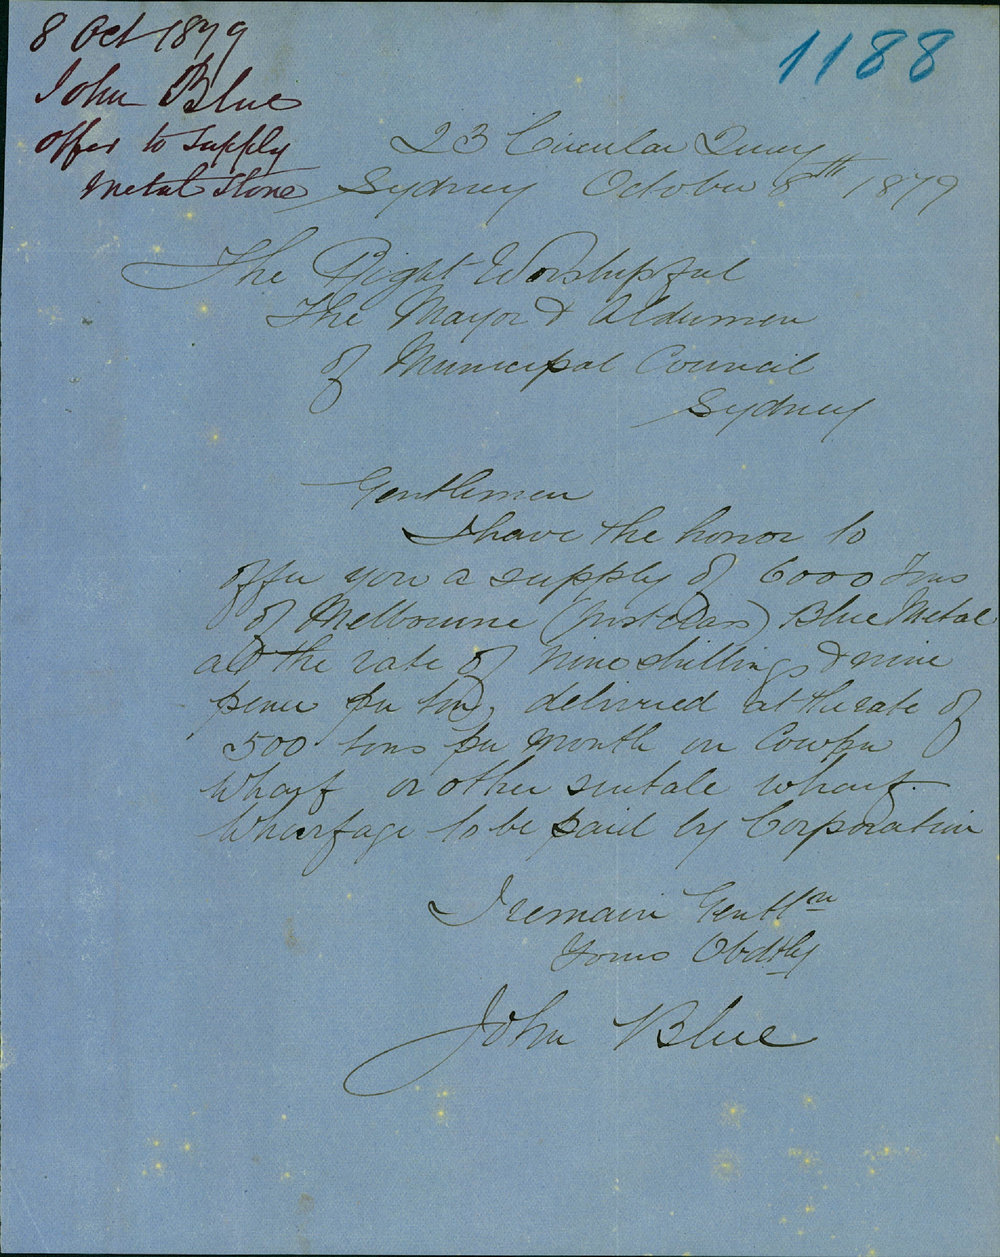 8 Oct 1879
John Blue
offer to supply
metal stone
1188
23 Circular Quay
Sydney October 8th 1879
The Right Worshipful
The Mayor & Aldermen
of Municipal Council
Sydney
Gentlemen
I have the honor to
offer you a supply of 6000 Tons
of Melbourne (first class) Blue Metal
at the rate of nine shillings & nine
pence per ton, delivered at the rate of
500 tons per month on Cowper
Wharf or other suitale wharf.
Wharfage to be paid by Corporation
I remain Gentln
Yours Obdtly
John Blue